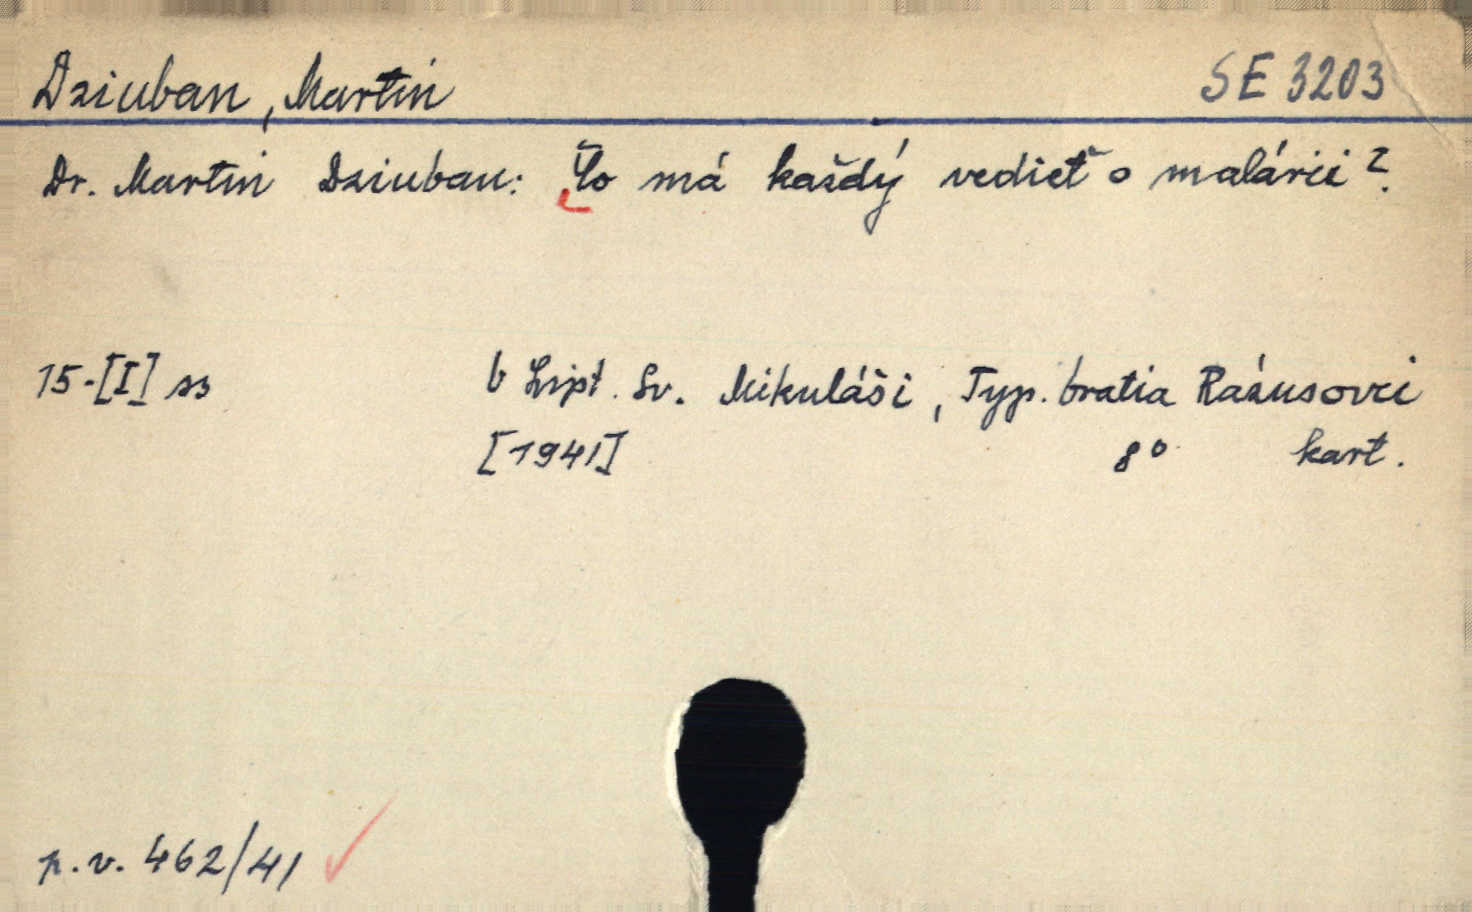 Dziuban, Martin SE 3203
Dr. Martin Dziuban: Čo má každý vedieť o malárii?
15-[I] ss V Lipt. Sv. Mikuláši, Typ. bratia Rázusovci
[1941] 8° kart.
p.v. 462/41